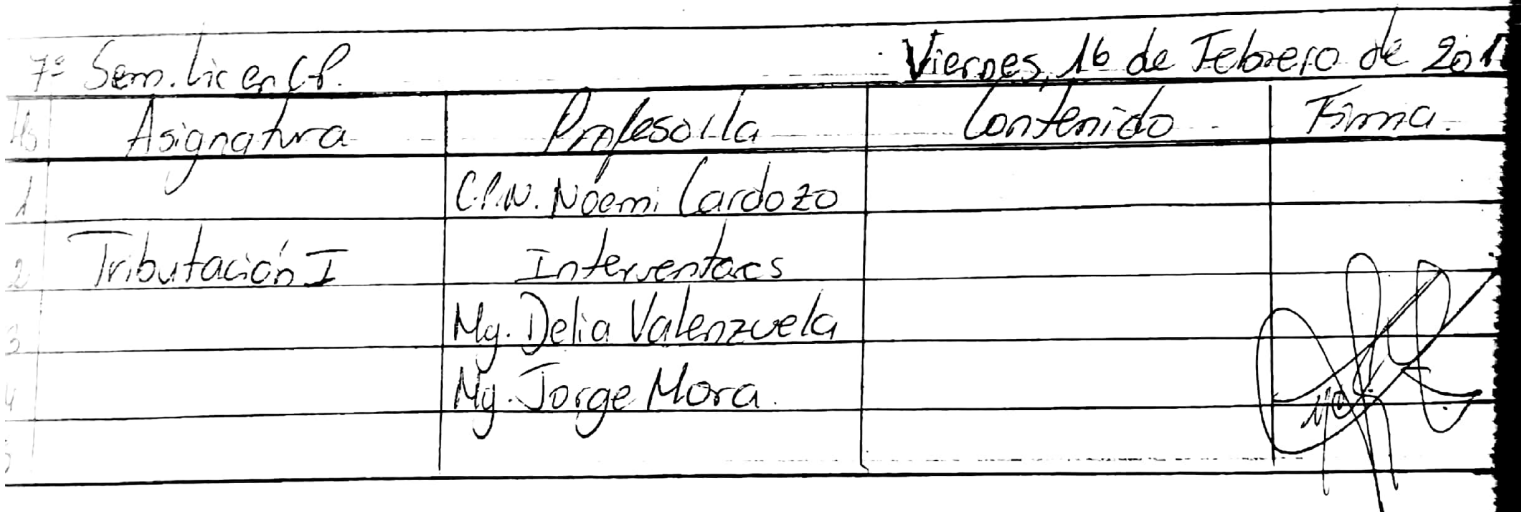 7º Sem. Lic en C.P. Viernes, 16 de Febrero de
Asignatura Profesor/la Contenido Firma.
1 C.P.N. Noemi Cardozo
2 Tributación I Interventores
3 Mg. Delia Valenzuela
4 Mg. Jorge Mora.
5